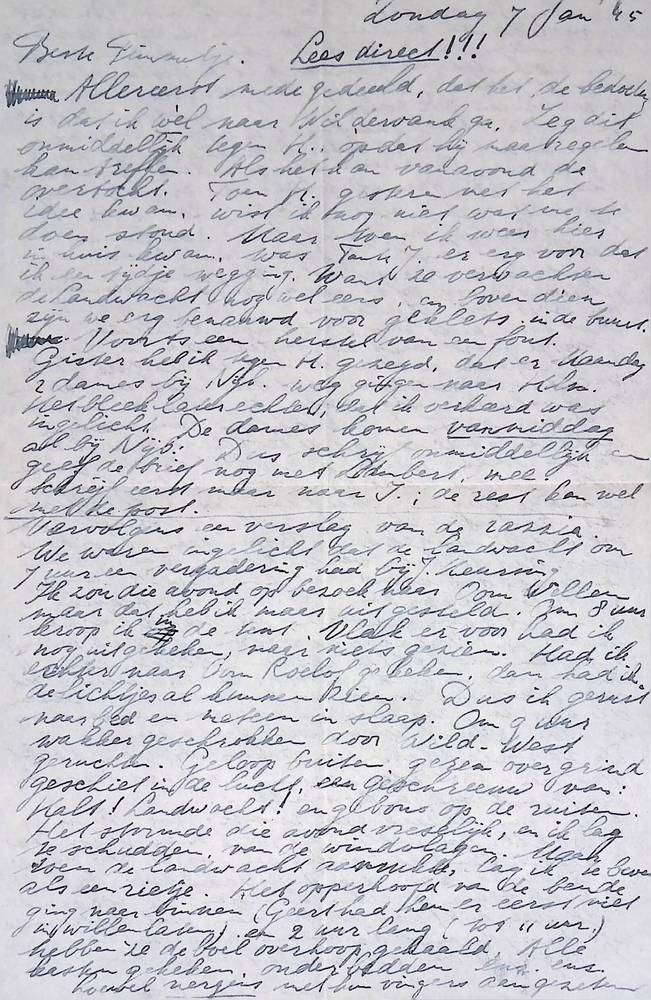 Zondag 7 Jan '45
Beste Pimmetje. Lees direct!!!
Allereerst mede gedeeld, dat het de bedoeling
is dat ik wèl naar Wildervank ga. Zeg dit
onmiddellijk tegen H., opdat hij maatregelen
kan treffen. Als het kan vanavond de
overtocht. Toen H. gisteren met het
idee kwam, wist ik nog niet wat me te
doen stond. Maar toen ik weer hier
in huis kwam, was Tante J. er erg voor dat
ik een tijdje wegging. Want ze verwachten
de Landwacht nog wel eens, en bovendien
zijn we erg benauwd voor geklets in de buurt.
Voorts een herstel van een fout.
Gister heb ik tegen H. gezegd, dat er Maandag
2 dames bij Nijb. weg gingen naar Hlm.
Het bleek later echter, dat ik verkeerd was
ingelicht. De dames komen vanmiddag
al bij Nijb. Dus schrijf onmiddellijk en
geef de brief nog met Lambert mee.
Schrijf eerst maar naar J.; de rest kan wel
met de post.
Vervolgens een verslag van de razzia.
We waren ingelicht dat de Landwacht om
7 uur een vergadering had bij J. Keursing
Ik zou die avond op bezoek naar Oom Willem
maar dat heb ik maar uitgesteld. Om 8 uur
kroop ik in de tent. Vlak er voor had ik
nog uitgekeken, maar niets gezien. Had ik
echter naar Oom Roelof gekeken, dan had ik
de lichtjes al kunnen zien. Dus ik gerust
naar bed en meteen in slaap. Om 9 uur
wakker geschrokken door Wild-West
geruchten. Geloop buiten, gezem over grind
geschiet in de lucht, een geschreeuw van:
Halt! Landwacht! en gebons op de ruiten.
Het stormde die avond vreselijk, en ik lag
te schudden van de windvlagen. Maar
toen de Landwacht aanrukte, lag ik te beven
als een rietje. Het opperhoofd van de bende
ging naar binnen (Geert had hem er eerst niet
in willen laten) en 2 uur lang (tot 11 uur.)
hebben ze de boel overhoop gehaald. Alle
kasten gekeken, onder bedden enz. enz.
hoewel nergens met hun vingers aangezeten